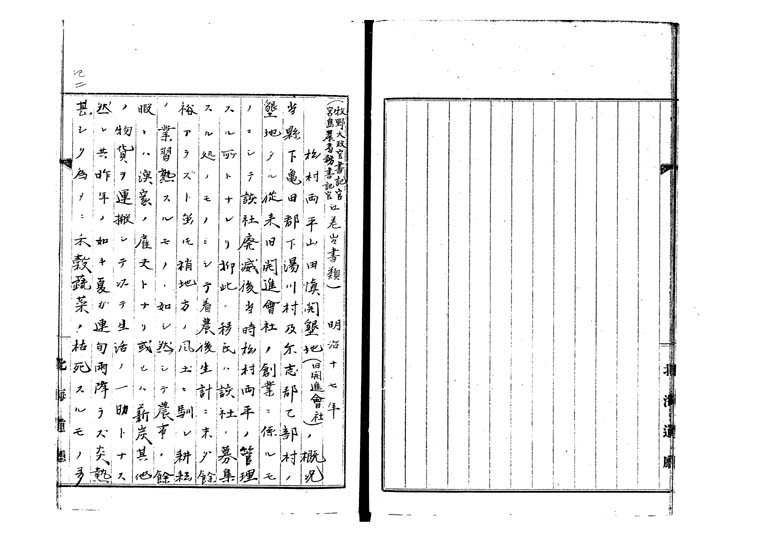 (牧野大政官書記官
宮島農商務書記官 巡巻出書類) 明治十七年
松村両平山田慎開墾地(旧開進會社)ノ概況
当縣下亀田郡下湯川村及尓志郡乙部村ノ
墾地タル従来旧開進會社ノ創業ニ係ルモ
ノニシテ該社廃滅後当時松村両平ノ管理
スル所トナレリ抑此ノ移民ハ該社ノ募集
スル処ノモノニシテ着農後生計ニ未ダ餘
裕アラズト虽モ稍地方ノ風土ニ馴レ耕耘
ノ業習熟スルモノヽ如シ然シテ農事ノ餘
暇ニハ漁家ノ雇夫トナリ或ヒハ薪炭其他
ノ物貨ヲ運搬シテ以テ生活ノ一助トナス
然レ共昨年ノ如キ夏分連旬雨降ラズ炎熱
甚シク為メニ禾穀蔬菜ノ枯死スルモノ多
北海道廳
北海道廳